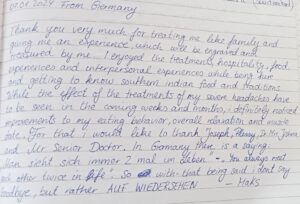 09.04.2024 From Germany
Thank you very much for treating me like family and
giving me an experience, which will be engraved and
treasured by me. I enjoyed the treatments, hospitality, food
experiences and interpersonal experiences while being here
and getting to know southern indian food and traditions.
While the effect of the treatments of my severe headaches have
to be seen in the coming weeks and months, I definitely noticed
improvements to my eating behavior, overall relaxation and
state. For that I would like to thank "Joseph, Dr.
and Mr Senior Doctor. In Germany there is a saying:
"Man sieht sich immer 2 mal im Leben" - "You always meet
each other twice in life". So with that being said: I dont say
Goodbye, but rather AUF WIEDERSEHEN